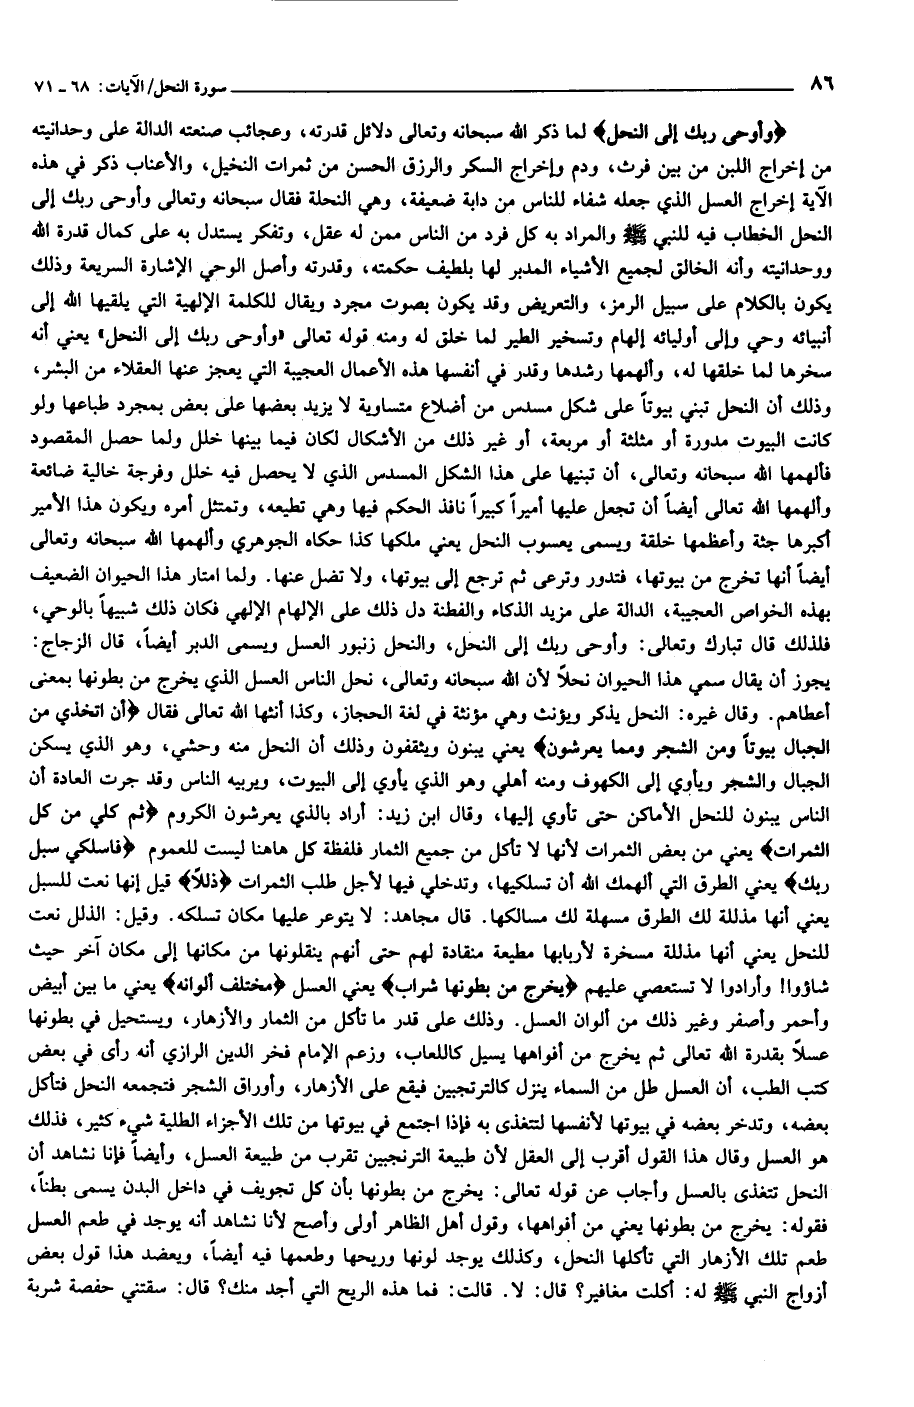 ٨٦ سورة النحل/ الآيات: ٦٨ - ٧١
﴿وأوحى ربك إلى النحل﴾ لما ذكر الله سبحانه وتعالى دلائل قدرته، وعجائب صنعته الدالة على وحدانيته
من إخراج اللبن من بين فرث، ودم وإخراج السكر والرزق الحسن من ثمرات النخيل، والأعناب ذكر في هذه
الآية إخراج العسل الذي جعله شفاء للناس من دابة ضعيفة، وهي النحلة فقال سبحانه وتعالى وأوحى ربك إلى
النحل الخطاب فيه للنبي ﷺ والمراد به كل فرد من الناس ممن له عقل، وتفكر يستدل به على كمال قدرة الله
ووحدانيته وأنه الخالق لجميع الأشياء المدبر لها بلطيف حكمته، وقدرته وأصل الوحي الإشارة السريعة وذلك
يكون بالكلام على سبيل الرمز، والتعريض وقد يكون بصوت مجرد ويقال للكلمة الإلهية التي يلقيها الله إلى
أنبيائه وحي وإلى أوليائه إلهام وتسخير الطير لما خلق له ومنه قوله تعالى «وأوحى ربك إلى النحل» يعني أنه
سخرها لما خلقها له، وألهمها رشدها وقدر في أنفسها هذه الأعمال العجيبة التي يعجز عنها العقلاء من البشر،
وذلك أن النحل تبني بيوتاً على شكل مسدس من أضلاع متساوية لا يزيد بعضها على بعض بمجرد طباعها ولو
كانت البيوت مدورة أو مثلثة أو مربعة، أو غير ذلك من الأشكال لكان فيما بينها خلل ولما حصل المقصود
فألهمها الله سبحانه وتعالى، أن تبنيها على هذا الشكل المسدس الذي لا يحصل فيه خلل وفرجة خالية ضائعة
وألهمها الله تعالى أيضاً أن تجعل عليها أميراً كبيراً نافذ الحكم فيها وهي تطيعه، وتمتثل أمره ويكون هذا الأمير
أكبرها جثة وأعظمها خلقة ويسمى يعسوب النحل يعني ملكها كذا حكاه الجوهري وألهمها الله سبحانه وتعالى
أيضاً أنها تخرج من بيوتها، فتدور وترعى ثم ترجع إلى بيوتها، ولا تضل عنها. ولما امتار هذا الحيوان الضعيف
بهذه الخواص العجيبة، الدالة على مزيد الذكاء والفطنة دل ذلك على الإلهام الإلهي فكان ذلك شبيهاً بالوحي،
فلذلك قال تبارك وتعالى: وأوحى ربك إلى النحل، والنحل زنبور العسل ويسمى الدبر أيضاً، قال الزجاج:
يجوز أن يقال سمي هذا الحيوان نحلاً لأن الله سبحانه وتعالى، نحل الناس العسل الذي يخرج من بطونها بمعنى
أعطاهم. وقال غيره: النحل يذكر ويؤنث وهي مؤنثة في لغة الحجاز، وكذا أنثها الله تعالى فقال ﴿أن اتخذي من
الجبال بيوتاً ومن الشجر ومما يعرشون﴾ يعني يبنون ويثقفون وذلك أن النحل منه وحشي، وهو الذي يسكن
الجبال والشجر ويأوي إلى الكهوف ومنه أهلي وهو الذي يأوي إلى البيوت، ويربيه الناس وقد جرت العادة أن
الناس يبنون للنحل الأماكن حتى تأوي إليها، وقال ابن زيد: أراد بالذي يعرشون الكروم ﴿ثم كلي من كل
الثمرات﴾ يعني من بعض الثمرات لأنها لا تأكل من جميع الثمار فلفظة كل هاهنا ليست للعموم ﴿فاسلكي سبل
ربك﴾ يعني الطرق التي ألهمك الله أن تسلكيها، وتدخلي فيها لأجل طلب الثمرات ﴿ذللاً﴾ قيل إنها نعت للسبل
يعني أنها مذللة لك الطرق مسهلة لك مسالكها. قال مجاهد: لا يتوعر عليها مكان تسلكه. وقيل: الذلل نعت
للنحل يعني أنها مذللة مسخرة لأربابها مطيعة منقادة لهم حتى أنهم ينقلونها من مكانها إلى مكان آخر حيث
شاؤوا! وأرادوا لا تستعصي عليهم ﴿يخرج من بطونها شراب﴾ يعني العسل ﴿مختلف ألوانه﴾ يعني ما بين أبيض
وأحمر وأصفر وغير ذلك من ألوان العسل. وذلك على قدر ما تأكل من الثمار والأزهار، ويستحيل في بطونها
عسلاً بقدرة الله تعالى ثم يخرج من أفواهها يسيل كاللعاب، وزعم الإمام فخر الدين الرازي أنه رأى في بعض
كتب الطب، أن العسل طل من السماء ينزل كالترنجبين فيقع على الأزهار، وأوراق الشجر فتجمعه النحل فتأكل
بعضه، وتدخر بعضه في بيوتها لأنفسها لتتغذى به فإذا اجتمع في بيوتها من تلك الأجزاء الطلية شيء كثير، فذلك
هو العسل وقال هذا القول أقرب إلى العقل لأن طبيعة الترنجبين تقرب من طبيعة العسل، وأيضاً فإنا نشاهد أن
النحل تتغذى بالعسل وأجاب عن قوله تعالى: يخرج من بطونها بأن كل تجويف في داخل البدن يسمى بطناً،
فقوله: يخرج من بطونها يعني من أفواهها، وقول أهل الظاهر أولى وأصح لأنا نشاهد أنه يوجد في طعم العسل
طعم تلك الأزهار التي تأكلها النحل، وكذلك يوجد لونها وريحها وطعمها فيه أيضاً، ويعضد هذا قول بعض
أزواج النبي ﷺ له: أكلت مغافير؟ قال: لا. قالت: فما هذه الريح التي أجد منك؟ قال: سقتني حفصة شربة